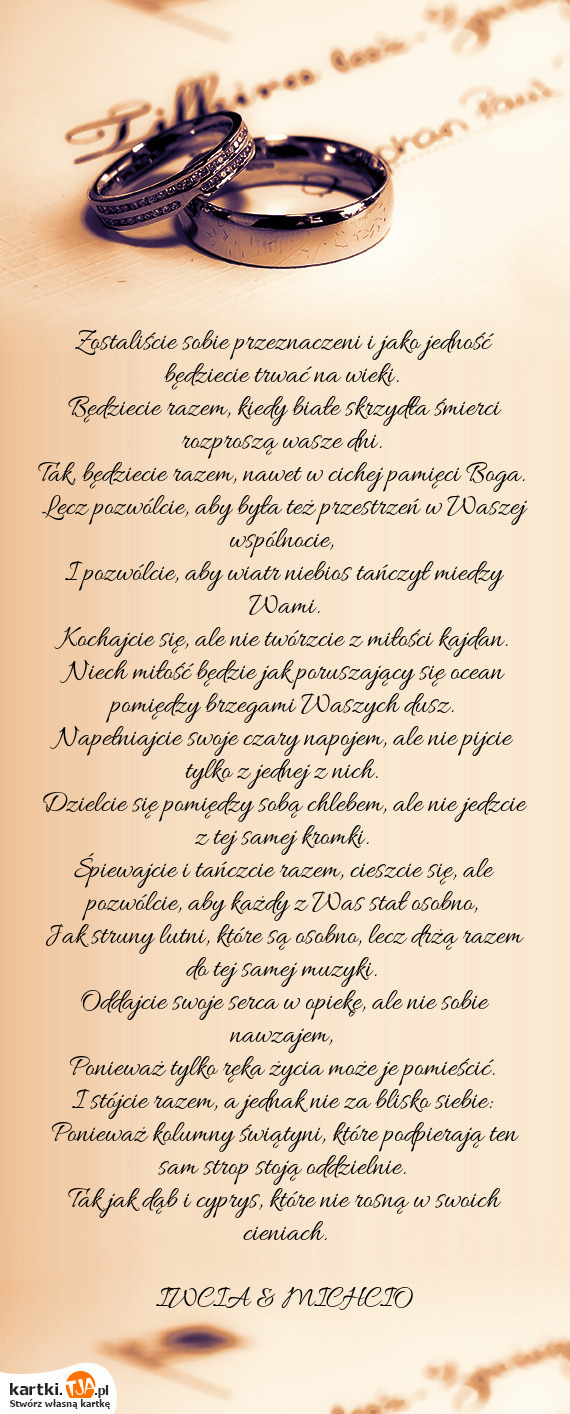 Zostaliście sobie przeznaczeni i jako jedność
będziecie trwać na wieki.
Będziecie razem, kiedy białe skrzydła śmierci
rozproszą wasze dni.
Tak, będziecie razem, nawet w cichej pamięci Boga.
Lecz pozwólcie, aby była też przestrzeń w Waszej
wspólnocie,
I pozwólcie, aby wiatr niebios tańczył miedzy
Wami.
Kochajcie się, ale nie twórzcie z miłości kajdan.
Niech miłość będzie jak poruszający się ocean
pomiędzy brzegami Waszych dusz.
Napełniajcie swoje czary napojem, ale nie pijcie
tylko z jednej z nich.
Dzielcie się pomiędzy sobą chlebem, ale nie jedzcie
z tej samej kromki.
Śpiewajcie i tańczcie razem, cieszcie się, ale
pozwólcie, aby każdy z Was stał osobno,
Jak struny lutni, które są osobno, lecz drżą razem
do tej samej muzyki.
Oddajcie swoje serca w opiekę, ale nie sobie
nawzajem,
Ponieważ tylko ręka życia może je pomieścić.
I stójcie razem, a jednak nie za blisko siebie:
Ponieważ kolumny świątyni, które podpierają ten
sam strop stoją oddzielnie.
Tak jak dąb i cyprys, które nie rosną w swoich
cieniach.
IWCIA & MICHCIO
kartki.TJA.pl
Stwórz własną kartkę